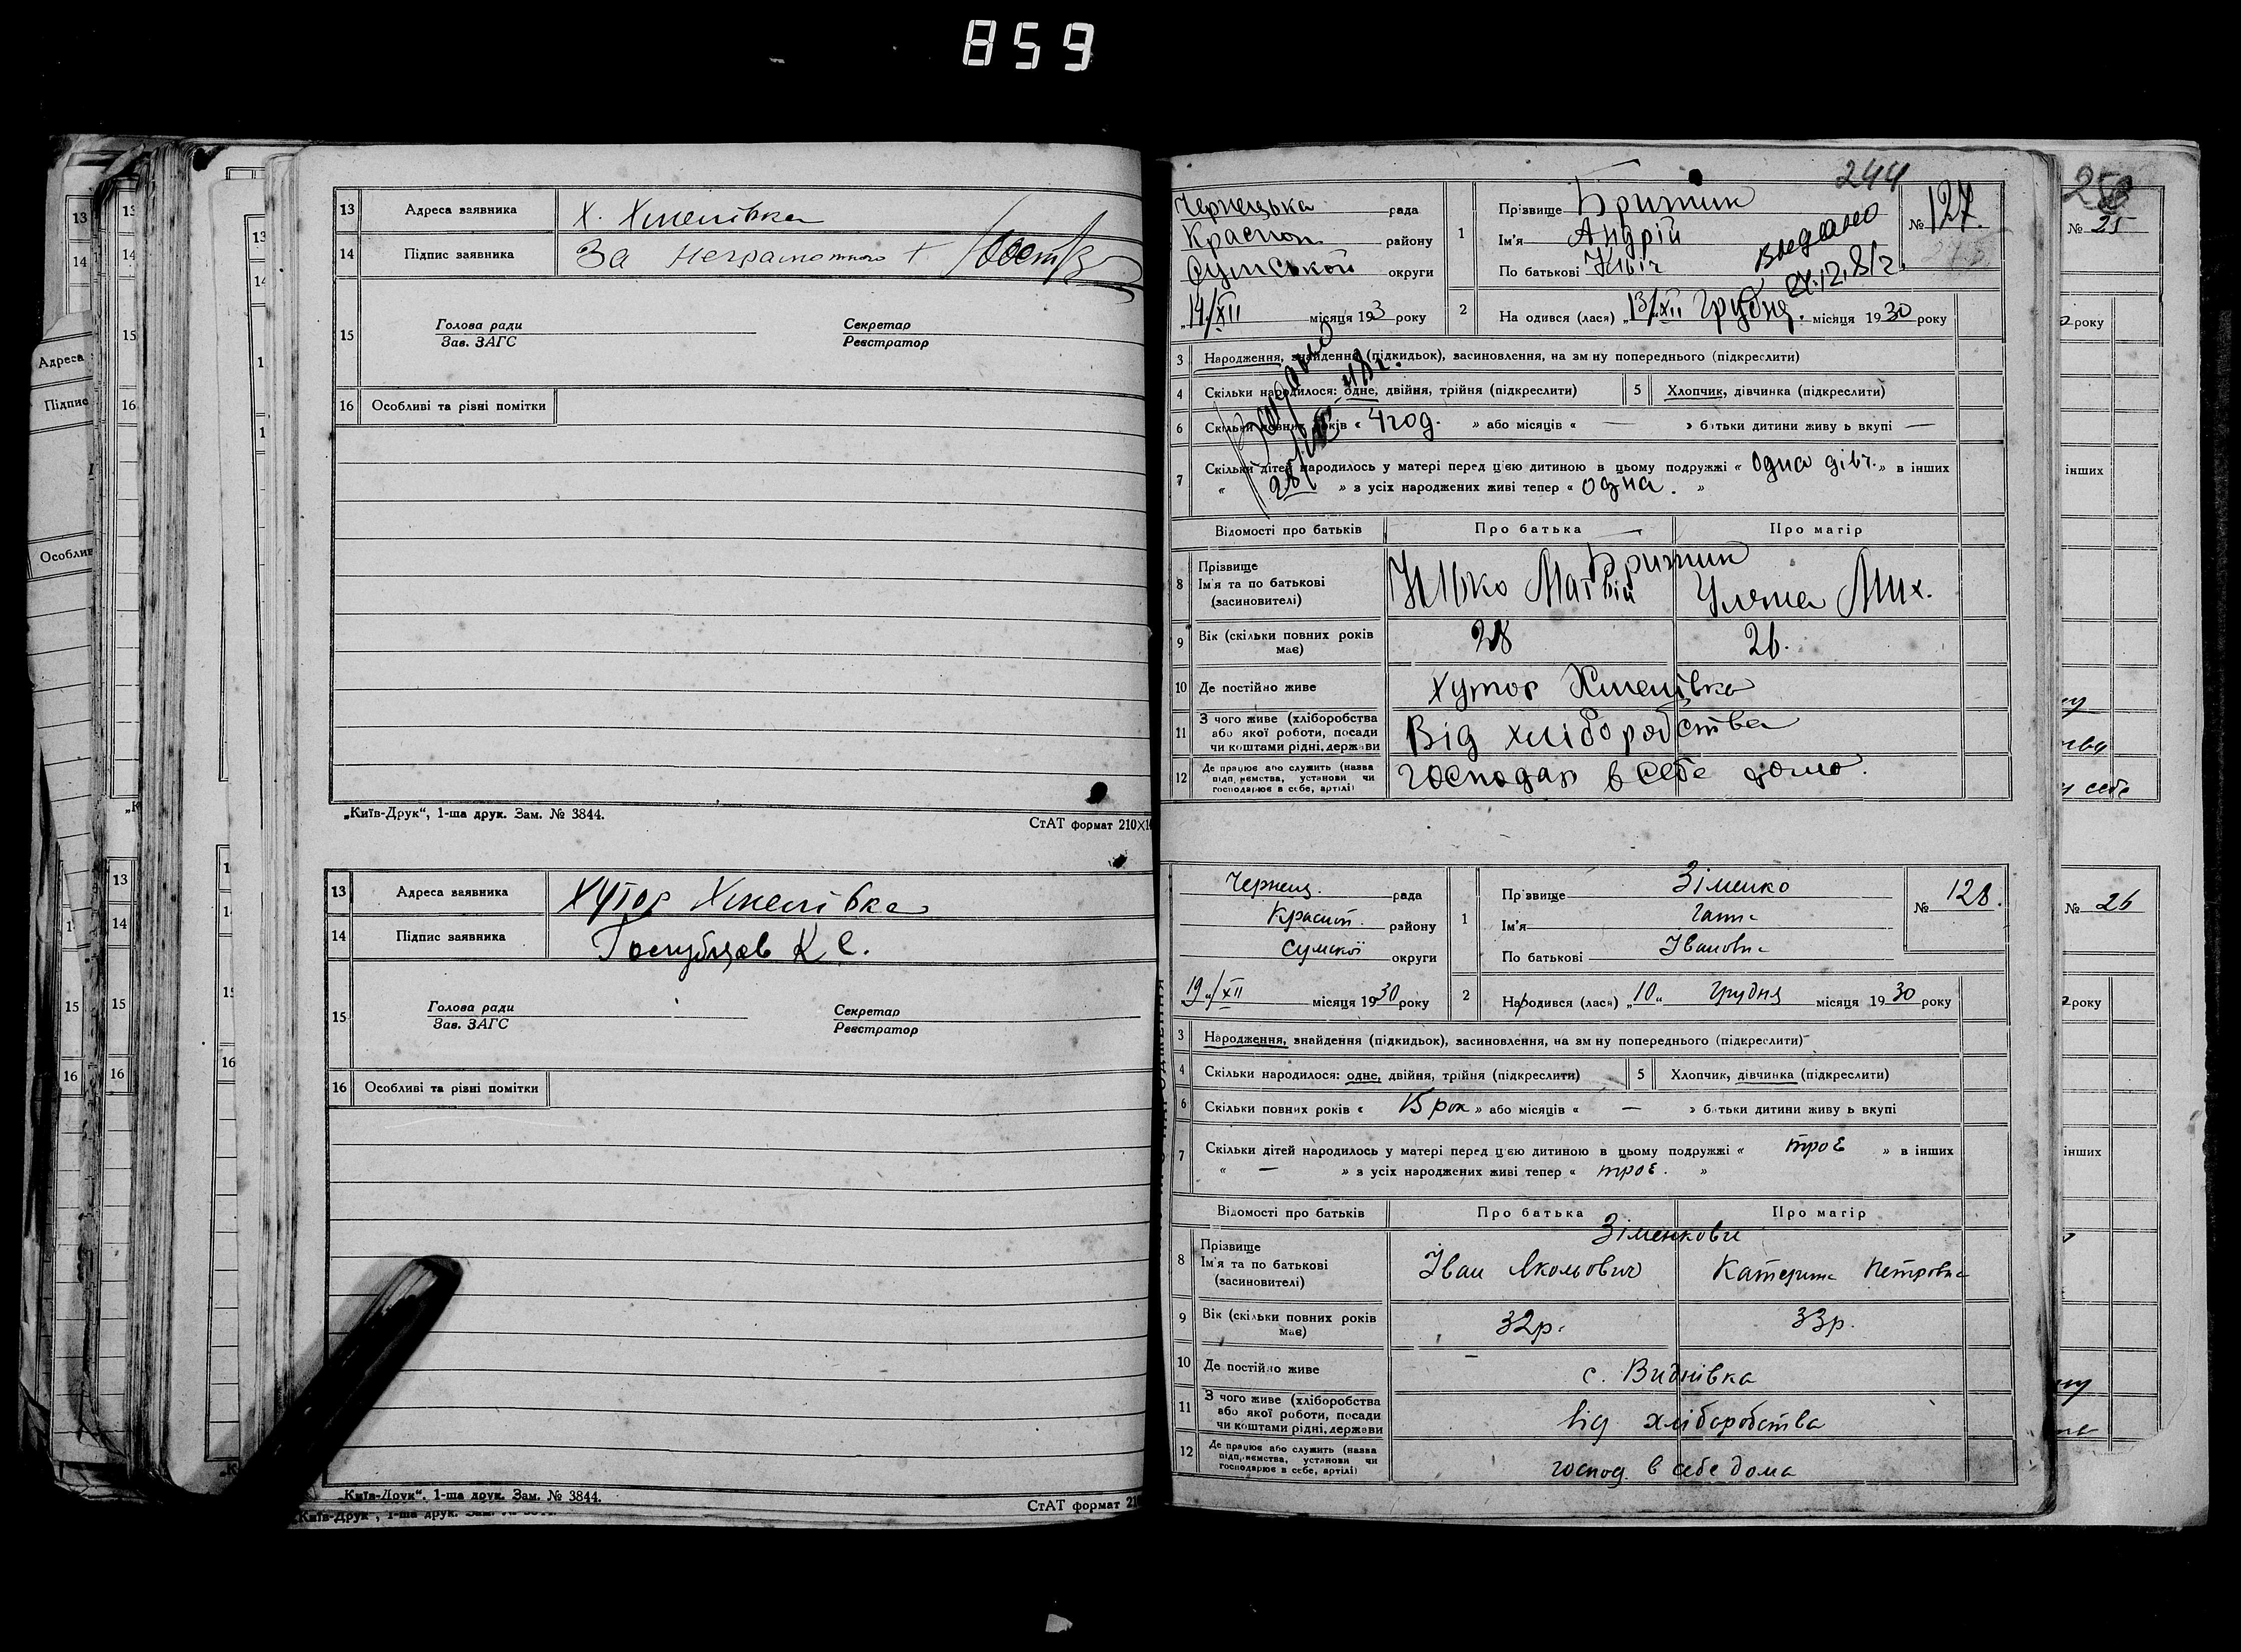 859
13 Адреса заявника Х. Хмелівка
14 Підпис заявника За неграмотного +
15 Голова ради Секретар
Зав. ЗАГС Реєстратор
16 Особливі та різні помітки
„Київ-Друк“, 1-ша друк. Зам. № 3844.
СтАТ формат 210×1
13 Адреса заявника Хутор Хмелівка
14 Підпис заявника Голубцов К С.
15 Голова ради Секретар
Зав. ЗАГС Реєстратор
16 Особливі та різні помітки
„Київ-Друк“, 1-ша друк. Зам. № 3844.
СтАТ формат 21
244
Чернецька рада
Краспоп району
Сумської округи
14/XII місяця 193 року
1 Прізвище
Ім'я Андрій
По батькові Ільіч
№ 127.
2 На одився (лася) „13/XII Грудня. місяця 1930 року
3 Народження, знайдення (підкидьок), васиновлення, на зм ну попереднього (підкреслити)
4 Скільки народилося: одне, двійня, трійня (підкреслити) 5 Хлопчик, дівчинка (підкреслити)
6 Скільки повних років « 4 год. » або місяців « — » батьки дитини живу ь вкупі —
7 Скільки дітей народилось у матері перед цією дитиною в цьому подружжі « одна дівч. » в інших
« » з усіх народжених живі тепер « одна. »
Відомості про батьків Про батька Про матір
8 Прізвище
Ім'я та по батькові Ілько Матвій Уляна Мих.
(засиновителі)
9 Вік (скільки повних років має) 28 26.
10 Де постійно живе Хутор Хмелівка
11 З чого живе (хліборобства
або якої роботи, посади Від хліборобства
чи коштами рідні, держави
12 Де працює або служить (назва
підприємства, установи чи Господар в себе дома.
господарює в себе, артілі)
Чернец. рада
Красноп. району
Сумскої округи
19/XII місяця 1930 року
1 Прізвище Зіменко
Ім'я Ганна
По батькові Івановна
№ 128.
2 Народився (лася) „10“ Грудня місяця 1930 року
3 Народження, знайдення (підкидьок), васиновлення, на зм ну попереднього (підкреслити)
4 Скільки народилося: одне, двійня, трійня (підкреслити) 5 Хлопчик, дівчинка (підкреслити)
6 Скільки повних років « 15 рок » або місяців « — » батьки дитини живу ь вкупі
7 Скільки дітей народилось у матері перед цією дитиною в цьому подружжі « троє » в інших
« — » з усіх народжених живі тепер « троє. »
Відомості про батьків Про батька Про матір
8 Прізвище Зіменкови
Ім'я та по батькові Іван Катерина Петровна
(засиновителі)
9 Вік (скільки повних років має) 32р. 33р.
10 Де постійно живе с. Виднівка
11 З чого живе (хліборобства
або якої роботи, посади від хліборобства
чи коштами рідні, держави
12 Де працює або служить (назва
підприємства, установи чи господ. в себе дома
господарює в себе, артілі)
№ 25
року
інших
себе
№ 26
року
інших